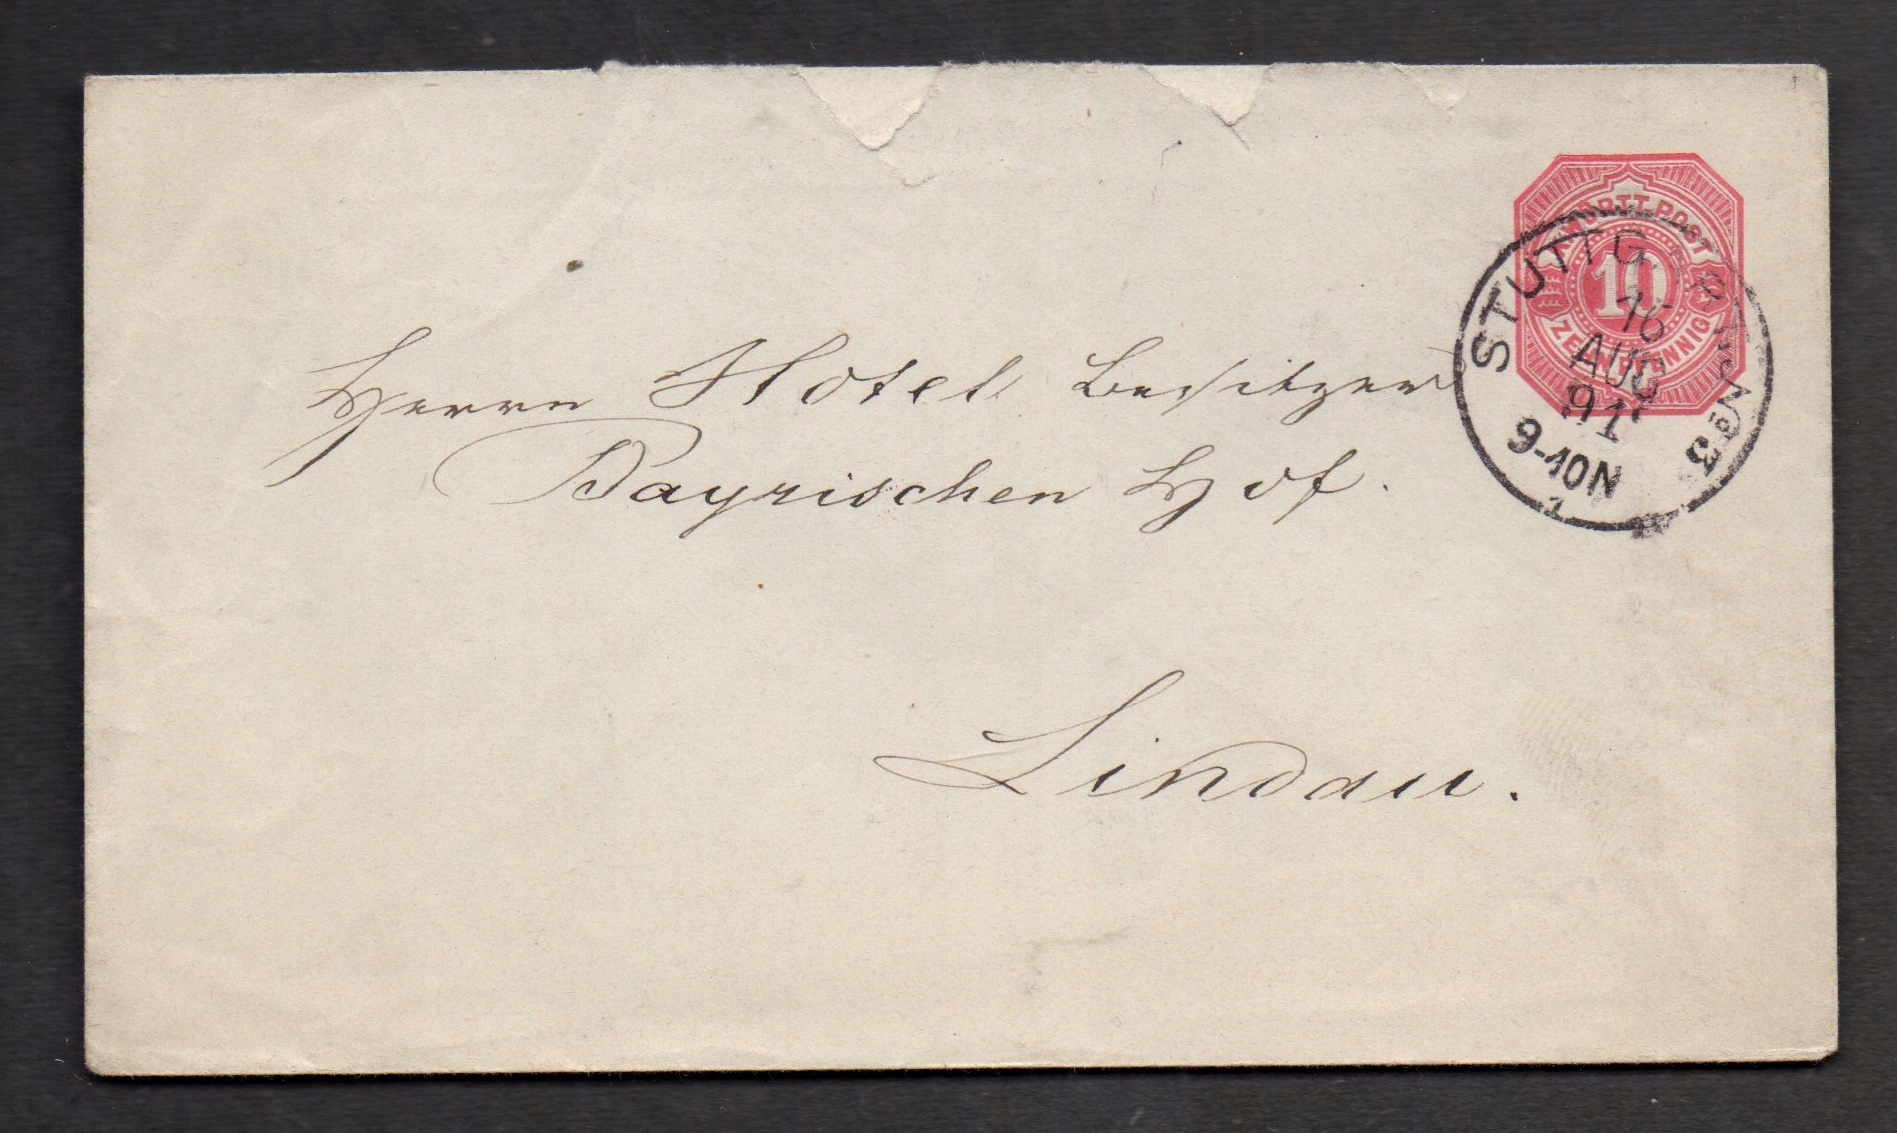 WÜRTT. POST
10
ZEHN PFENNIG
STUTTG.
16
AUG
91
9-10N
Herrn Hotel Besitzer
Bayrischen Hof.
Lindau.